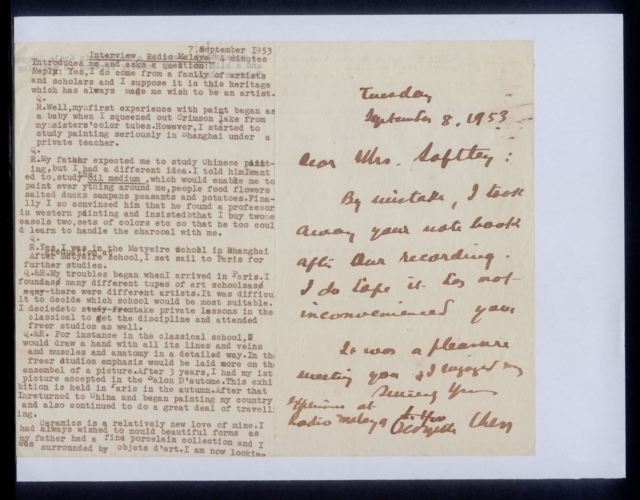 7 September 1953
Interview Radio Malaya 4 minutes
Introduces me and asks a question
Reply: Yes,I do come from a family of artists
and scholars and I suppose it is this heritage
which has always made me wish to be an artist.
Q.
R.Well,my first experience with paint began as
a baby when I squeezed out Crimson lake from
my sisters'color tubes.However,I started to
study painting seriously in Shanghai under a
private teacher.
Q.
R.My father expected me to study Chinese paint-
ing,but I had a different idea.I told him I want
ed to,study oil medium ,which would enable me to
paint ever ything around me,people food flowers
salted ducks sampans peasants and potatoes.Fina-
lly I so convinced him that he found a professor
in western painting and insisted that I buy two
easels two,sets of colors etc so that he too coul
d learn to handle the charcoal with me.
Q.
R.Yes,I was in the Motyeire School in Shanghai
After Motyeire School,I set sail to Paris for
further studies.
Q.&R.My troubles began when I arrived in Paris.I
found many different types of art schools
many there were different artists.It was difficu
lt to decide which school would be most suitable.
I decided to study from take private lessons in the
classical to get the discipline and attended
freer studios as well.
Q.&R. For instance in the classical school,I
would draw a hand with all its lines and veins
and muscles and anatomy in a detailed way.In the
freer studios emphasis would be laid more on the
ensembel of a picture.After 3 years,I had my 1st
picture accepted in the Salon D'automne.This exhi
bition is held in Paris in the autumn.After that
I returned to China and began painting my country
and also continued to do a great deal of travell
ing.
Ceramics is a relatively new love of mine.I
had always wished to mould beautiful forms as
my father had a fine porcelain collection and I
was surrounded by objets d'art.I am now looking
Tuesday
September 8, 1953
Dear Mrs. Softley:
By mistake, I took
away your note book
after our recording.
I do hope it has not
inconvenienced you
It was a pleasure
meeting you & I enjoyed my
experience at
Radio Malaya
Sincerely Yours
Georgette Chen